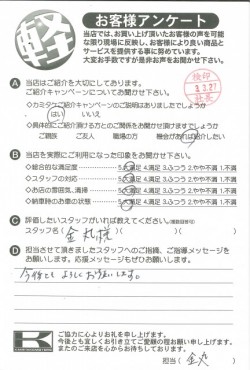 軽
お客様アンケート
当店では、お買い上げ頂いたお客様の声を可能
な限り現場に反映し、お客様により良い商品と
サービスを提供する事に努めています。
大変お手数ですが是非お声をお聞かせ下さい。
検印
社長
A 当店はご紹介を大切にしております。
ご紹介キャンペーンについてお聞かせ下さい。
◇カミタケご紹介キャンペーンのご説明はありましたでしょうか
はい いいえ
◇具体的にご紹介頂ける方とのご関係をお聞かせ頂けますでしょうか
ご親族 ご友人 職場の方 機会があれば紹介したい
B 当店を実際にご利用になった印象をお聞かせ下さい。
◇総合的な満足度 5.大満足 4.満足 3.ふつう 2.やや不満 1.不満
◇スタッフの対応 5.大満足 4.満足 3.ふつう 2.やや不満 1.不満
◇お店の雰囲気、清掃 5.大満足 4.満足 3.ふつう 2.やや不満 1.不満
◇納車時のお車の状態 5.大満足 4.満足 3.ふつう 2.やや不満 1.不満
C 評価したいスタッフがいれば教えてください。(複数回答可)
スタッフ名( 金丸様 )
D 担当させて頂きましたスタッフへのご指摘、ご指導メッセージを
お願いします。応援メッセージもぜひお願いします。
今後とも よろしくお願いします。
K
ご協力に心よりお礼を申し上げます。
今後とも宜しくお引き立てご愛顧の程お願い申し上げます。
またのご来店を心からお待ちしております。
担当( 金丸 )